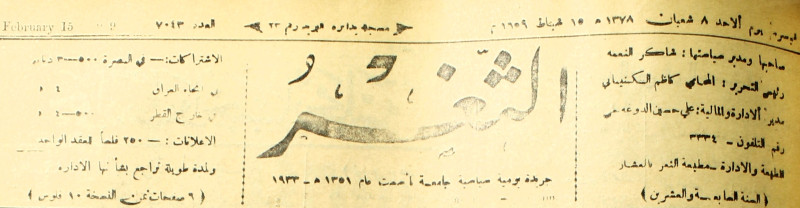 البصرة: يوم الاحد ٨ شعبان ١٣٧٨ ھ ١٥ شباط ١٩٥٩ م
مسجلة بدائرة البريد رقم ٢٣
العدد ٧٠٤٣
February 15
صاحبها ومدير سياستها : شاكر النعمه
رئيس التحرير : المحامي كاظم السكنيناني
مدير الادارة والمالية : علي حسين
رقم التلفون - ٣٣٣٤
الطبعة والادارة - مطبعة الثغر بالعشار
( السنة السابعـة والعشرين )
الثغر
جريدة يومية سياسية جامعة تأسست عام ١٣٥١ ھ - ١٩٣٣
الاشتراكات : - في البصرة ٥٠٠-٣ دينار
في انحاء العراق ٤ »
في خارج القطر ٥٠٠-٤ »
الاعلانات : - ٢٥٠ فلساً للعقد الواحد
ولمدة طويلة تراجع بشأنها الاداره
( ٦ صفحات ثمن النسخة ١٠ فلوس )